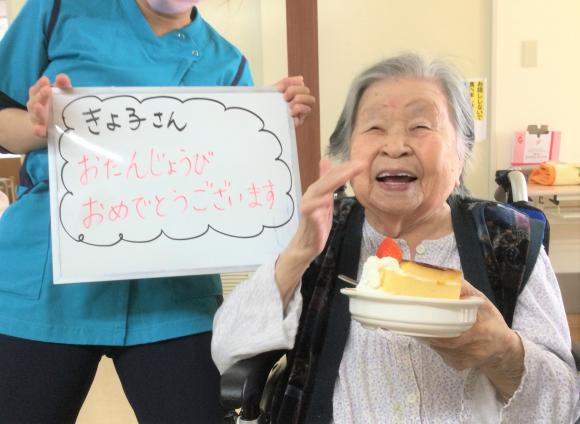 きよ子さん
おたんじょうび
おめでとうございます